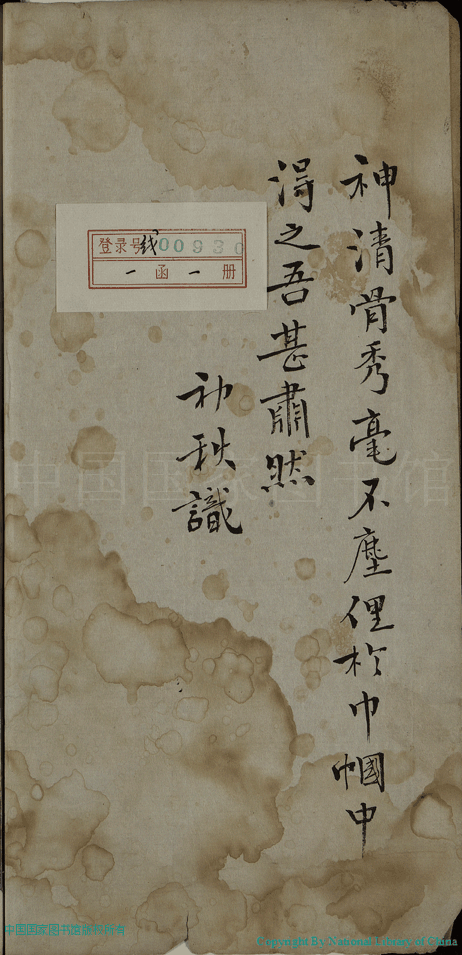 神清骨秀毫不塵俚於巾幗中
得之吾甚肅然
初秋識
登录号线00930
一函一册
中国国家图书馆
中国国家图书馆版权所有
Copyright By National Library of China